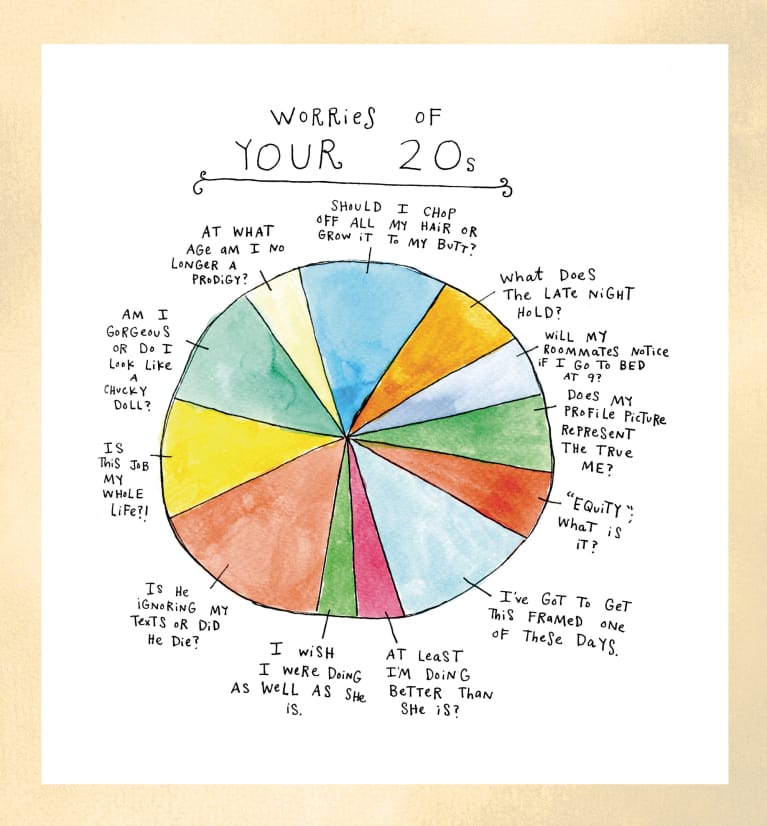 WORRieS OF
YOUR 20s
SHOULD I CHOP
OFF ALL MY HAIR OR
GROW iT TO MY BUTT?
WHAT DOES
THE LATE NiGHT
HOLD?
WiLL MY
ROOMMATES NOTiCE
iF I GO TO BED
AT 9?
DOES MY
PROFiLE PiCTURE
REPRESENT
THE TRUE
ME?
"EQUiTY":
WHAT iS
iT?
I'VE GOT TO GET
THiS FRAMED ONE
OF THESE DAYS.
AT LEAST
I'M DOiNG
BETTER THAN
SHE iS?
I WiSH
I WERE DOiNG
AS WELL AS SHE
iS.
IS HE
iGNORiNG MY
TEXTS OR DiD
HE DiE?
IS
THiS JOB
MY
WHOLE
LiFE?!
AM I
GORGEOUS
OR DO I
LOOK LiKE
A
CHUCKY
DOLL?
AT WHAT
AGE AM I NO
LONGER A
PRODiGY?